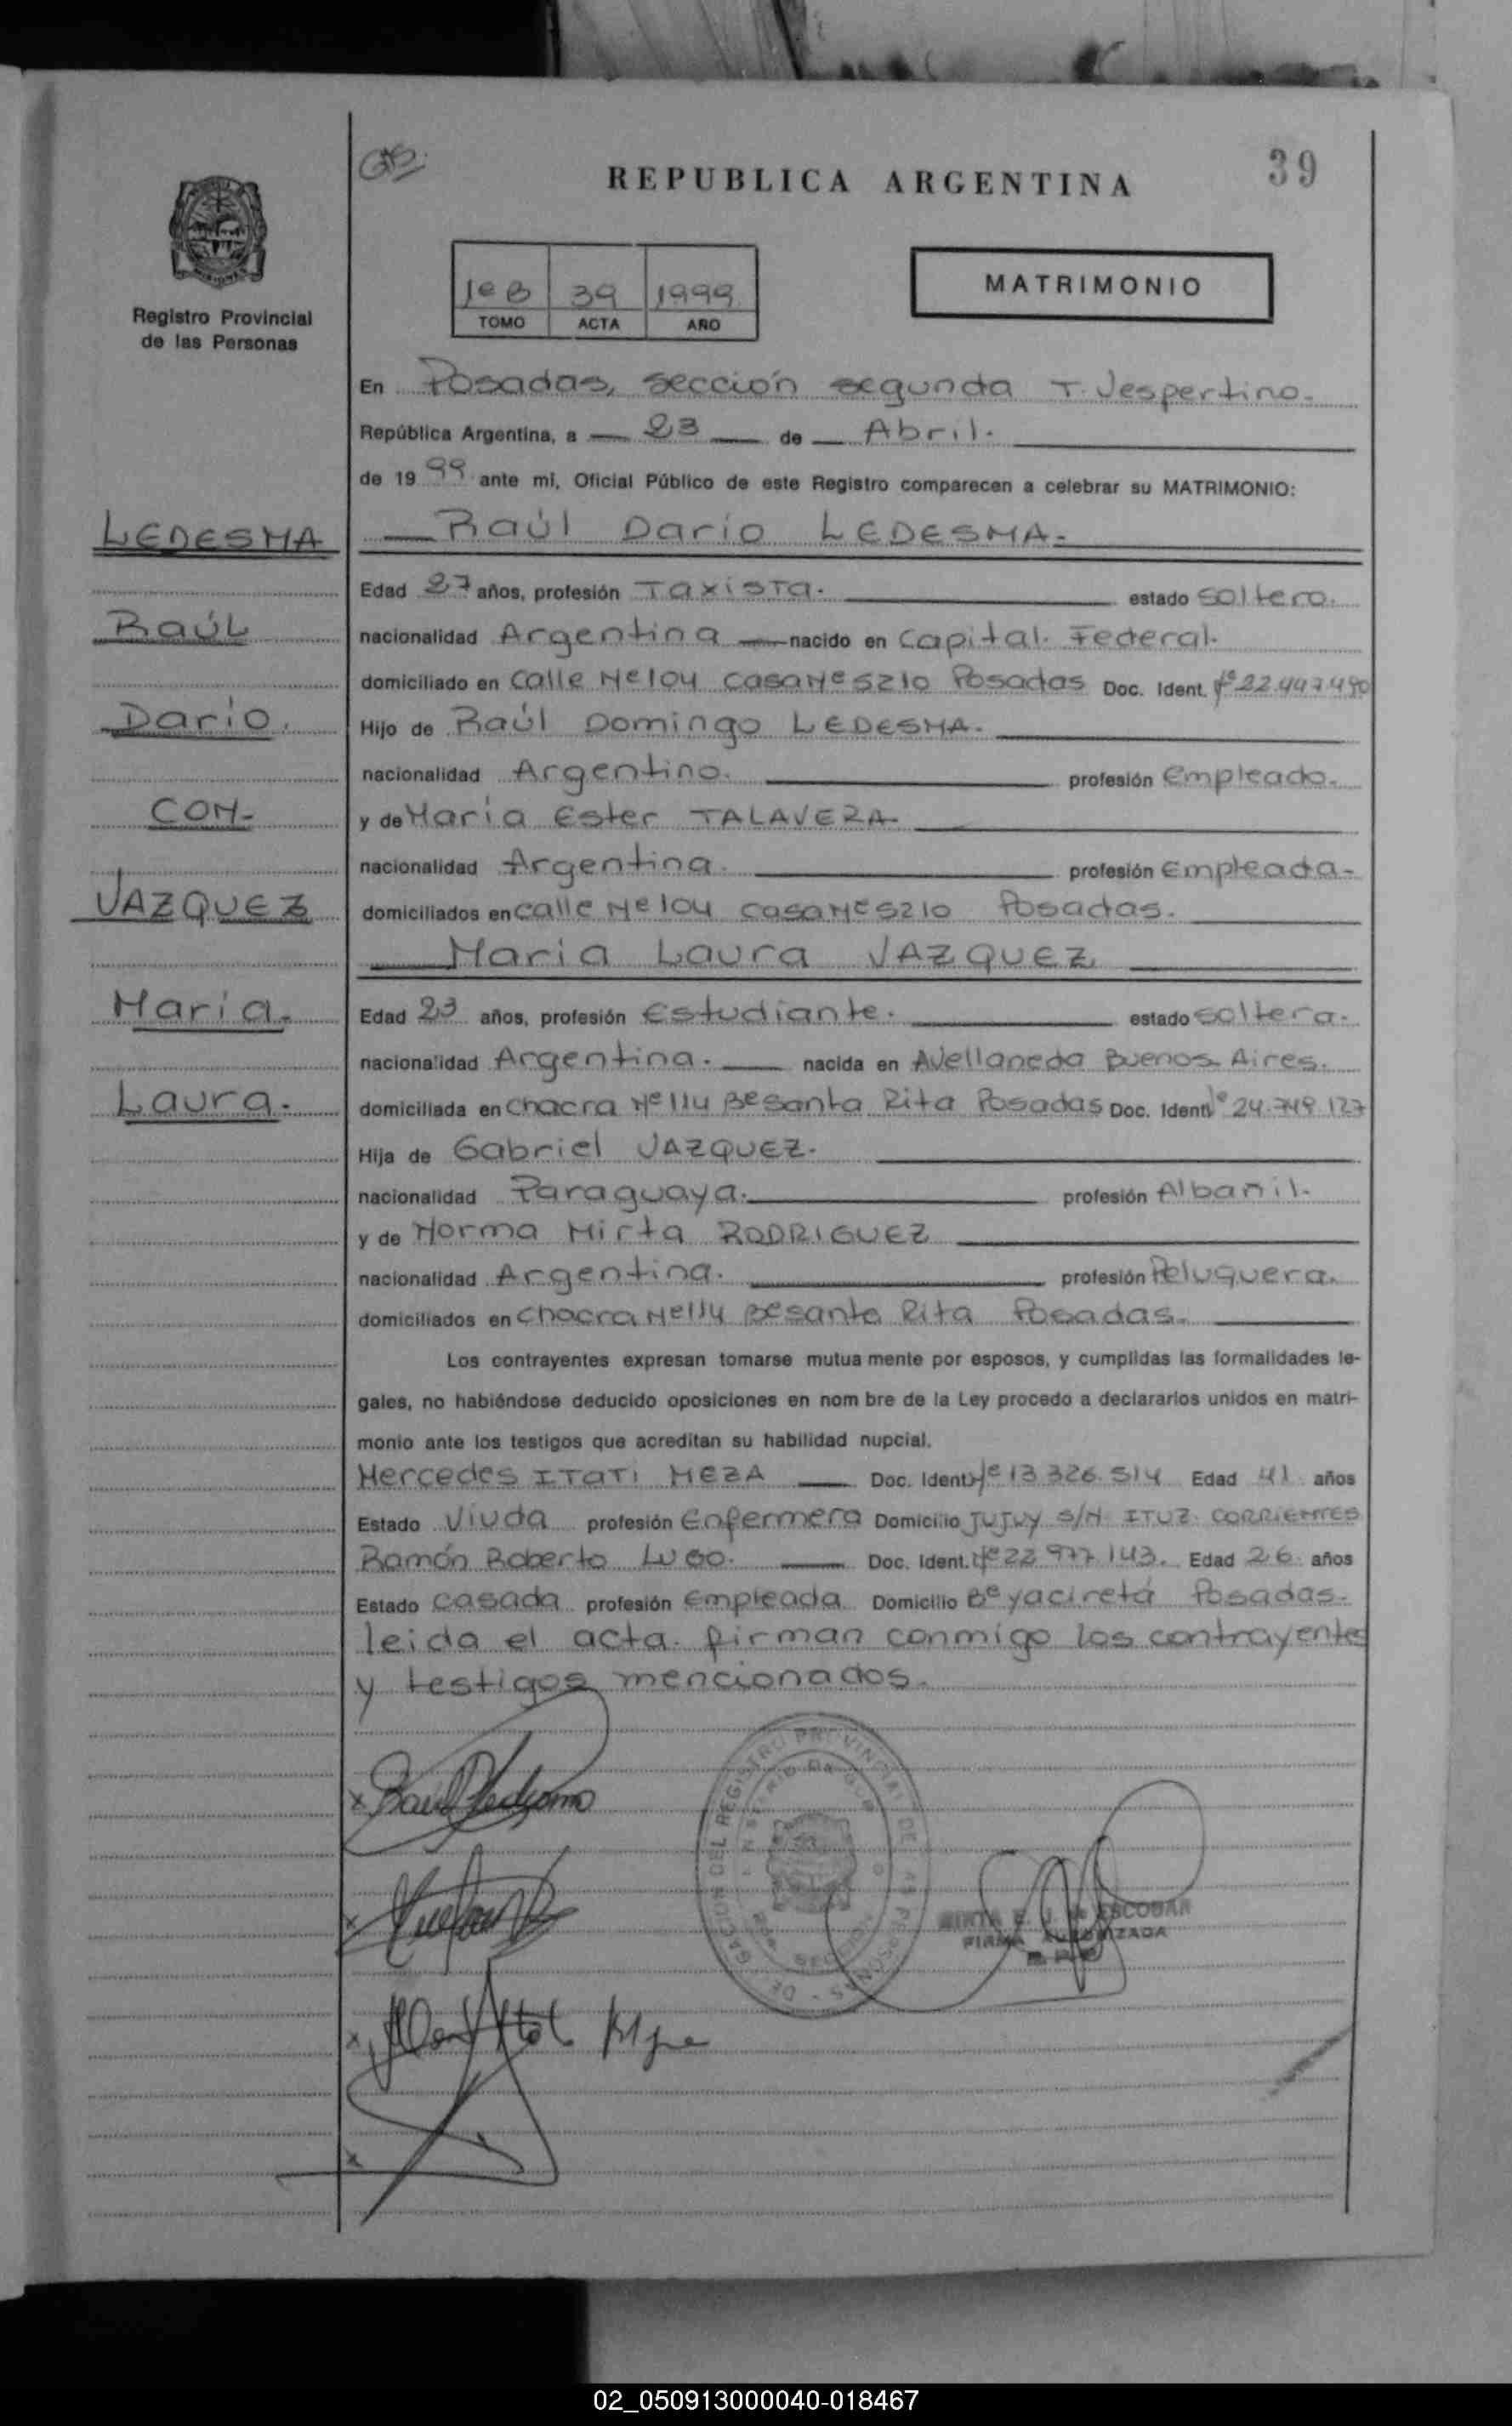 39
REPUBLICA ARGENTINA
Registro Provincial
de las Personas
1º B 39 1999
TOMO ACTA AÑO
MATRIMONIO
En Posadas, sección segunda T. Vespertino.
República Argentina, a 23 de Abril.
de 1999 ante mi, Oficial Público de este Registro comparecen a celebrar su MATRIMONIO:
LEDESMA
Raúl Dario LEDESMA.
Edad 27 años, profesión Taxista. estado soltero.
RaúL
nacionalidad Argentina nacido en Capital Federal.
domiciliado en calle Nº 104 casa Nº 5210 Posadas Doc. Ident. Nº 22.447.490
Dario.
Hijo de Raúl Domingo LEDESMA.
nacionalidad Argentino. profesión Empleado.
CON-
y de Maria Ester TALAVERA
nacionalidad Argentina. profesión Empleada-
VAZQUEZ
domiciliados en calle Nº 104 casa Nº 5210 Posadas.
Maria Laura VAZQUEZ
Maria.
Edad 23 años, profesión Estudiante. estado soltera.
nacionalidad Argentina. nacida en Avellaneda Buenos Aires.
Laura.
domiciliada en chacra Nº 114 Bº santa Rita Posadas Doc. Ident. Nº 24.749.127
Hija de Gabriel VAZQUEZ.
nacionalidad Paraguaya. profesión Albañil.
y de Norma Mirta RODRIGUEZ
nacionalidad Argentina. profesión Peluquera.
domiciliados en chacra Nº 114 Bº santa Rita Posadas.
Los contrayentes expresan tomarse mutua mente por esposos, y cumplidas las formalidades le-
gales, no habiéndose deducido oposiciones en nom bre de la Ley procedo a declararlos unidos en matri-
monio ante los testigos que acreditan su habilidad nupcial.
Mercedes ITATI MEZA Doc. Ident. Nº 13.326.514 Edad 41 años
Estado Viuda profesión Enfermera Domicilio Jujuy S/N ITUZ. CORRIENTES
Ramón Roberto LUGO. Doc. Ident. Nº 22.977.143. Edad 26 años
Estado casada profesión Empleada Domicilio Bº yacireta Posadas.
leida el acta. firman conmigo los contrayentes
y testigos mencionados.
ESCOBAR
FIRMA AUTORIZADA
02_050913000040-018467